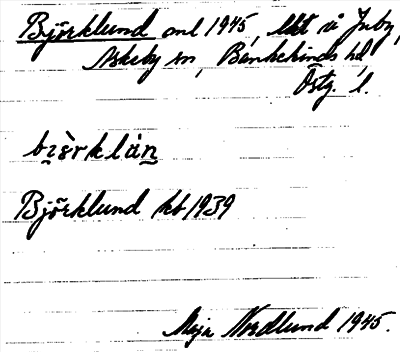 Björklund enl 1945, lht u Juby,
Askeby sn, Bankekinds hd,
Östg. l.
Björklund kb 1939
Maja Nordlund 1945.